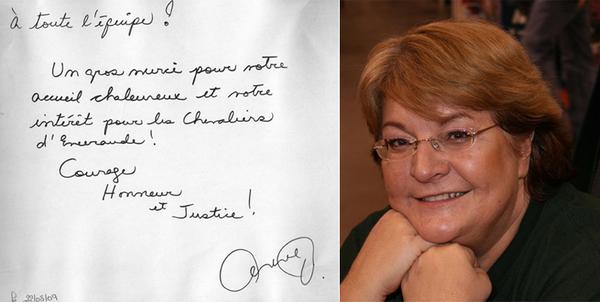 à toute l'équipe!
Un gros merci pour votre
accueil chaleureux et votre
intérêt pour les Chevaliers
d'Émeraude!
Courage
Honneur
et Justice!
22/03/09